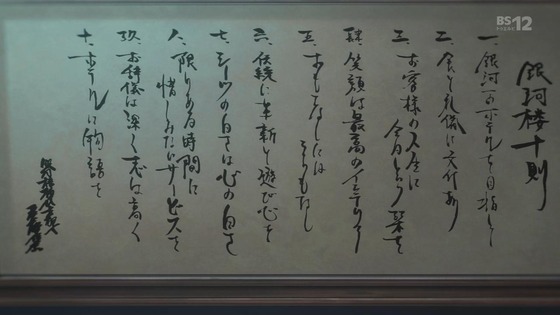 BS12
トゥエルビ
銀河楼十則
一、銀河一のホテルを目指して
二、食と礼儀に文化あり
三、お客様の人生に
今日という栞を
肆、笑顔は最高のインテリア
五、おもてなしには
うらもなし
六、伝統に革新と遊び心を
七、シーツの白さは心の白さ
八、限りある時間に
惜しみないサービスを
玖、お辞儀は深く志は高く
十、ホテルに物語を